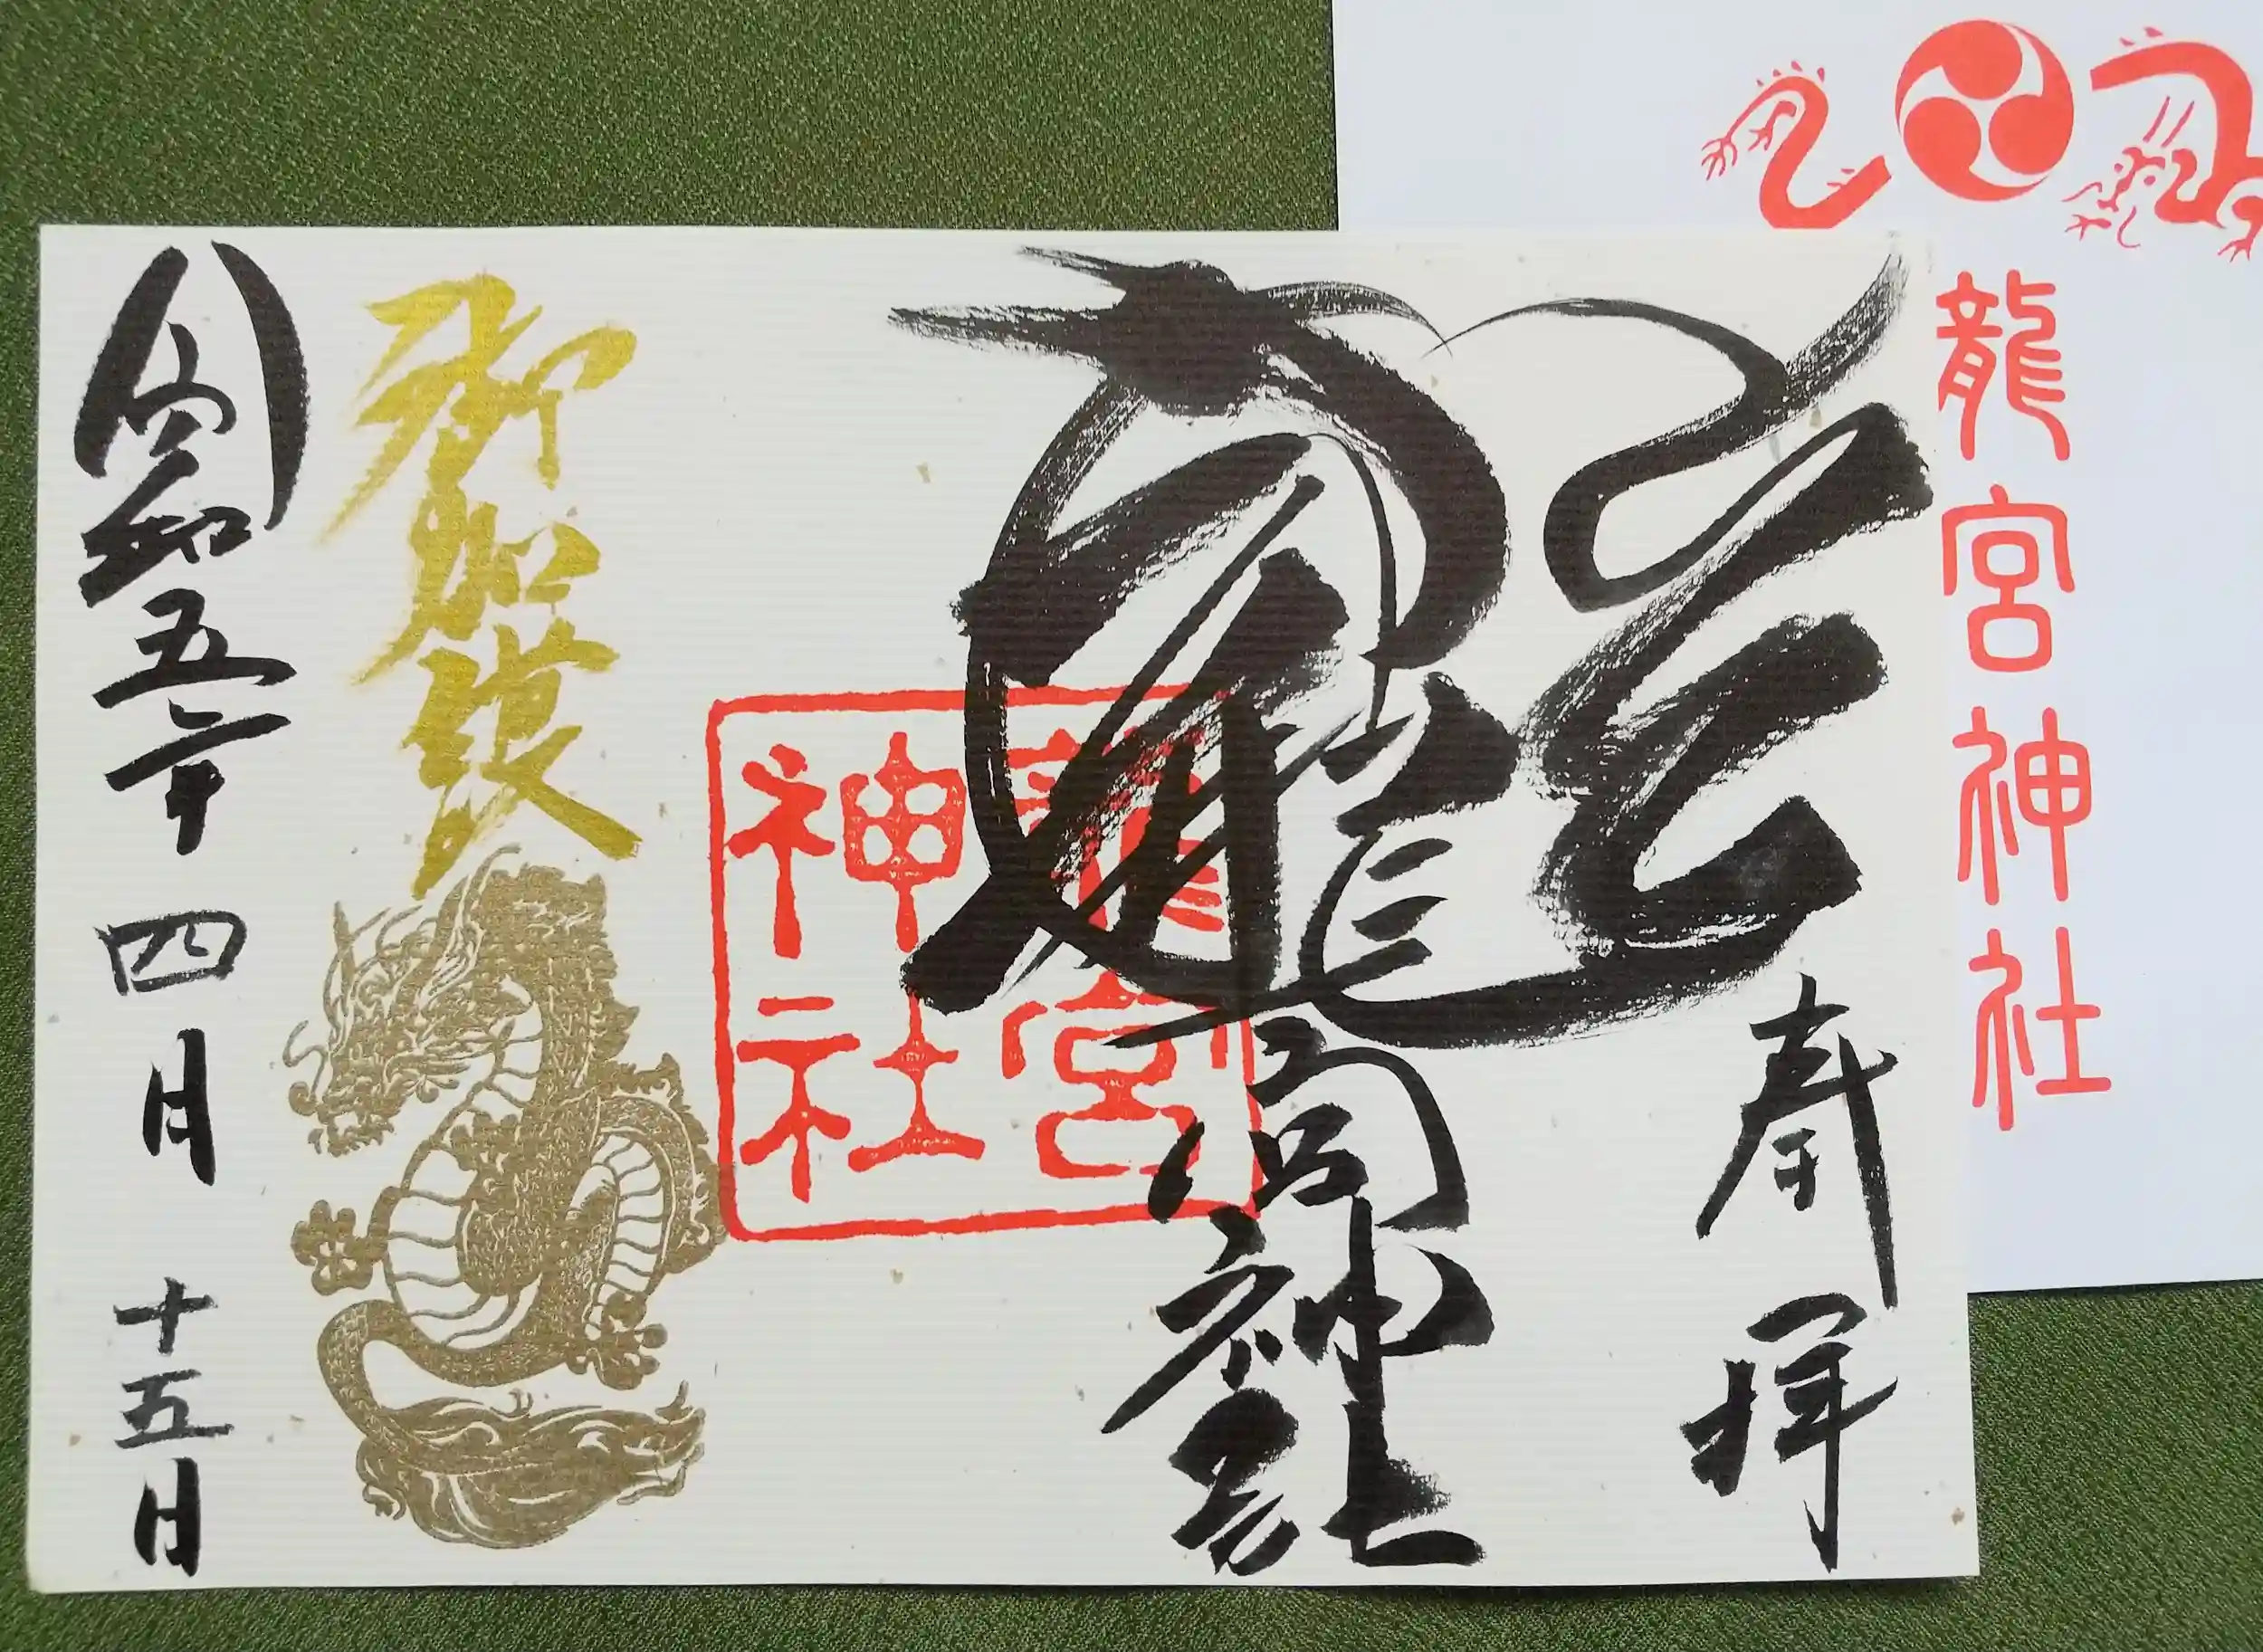 龍宮神社
奉拝
龍宮神社
龍宮
神社
御加護
令和五年四月十五日